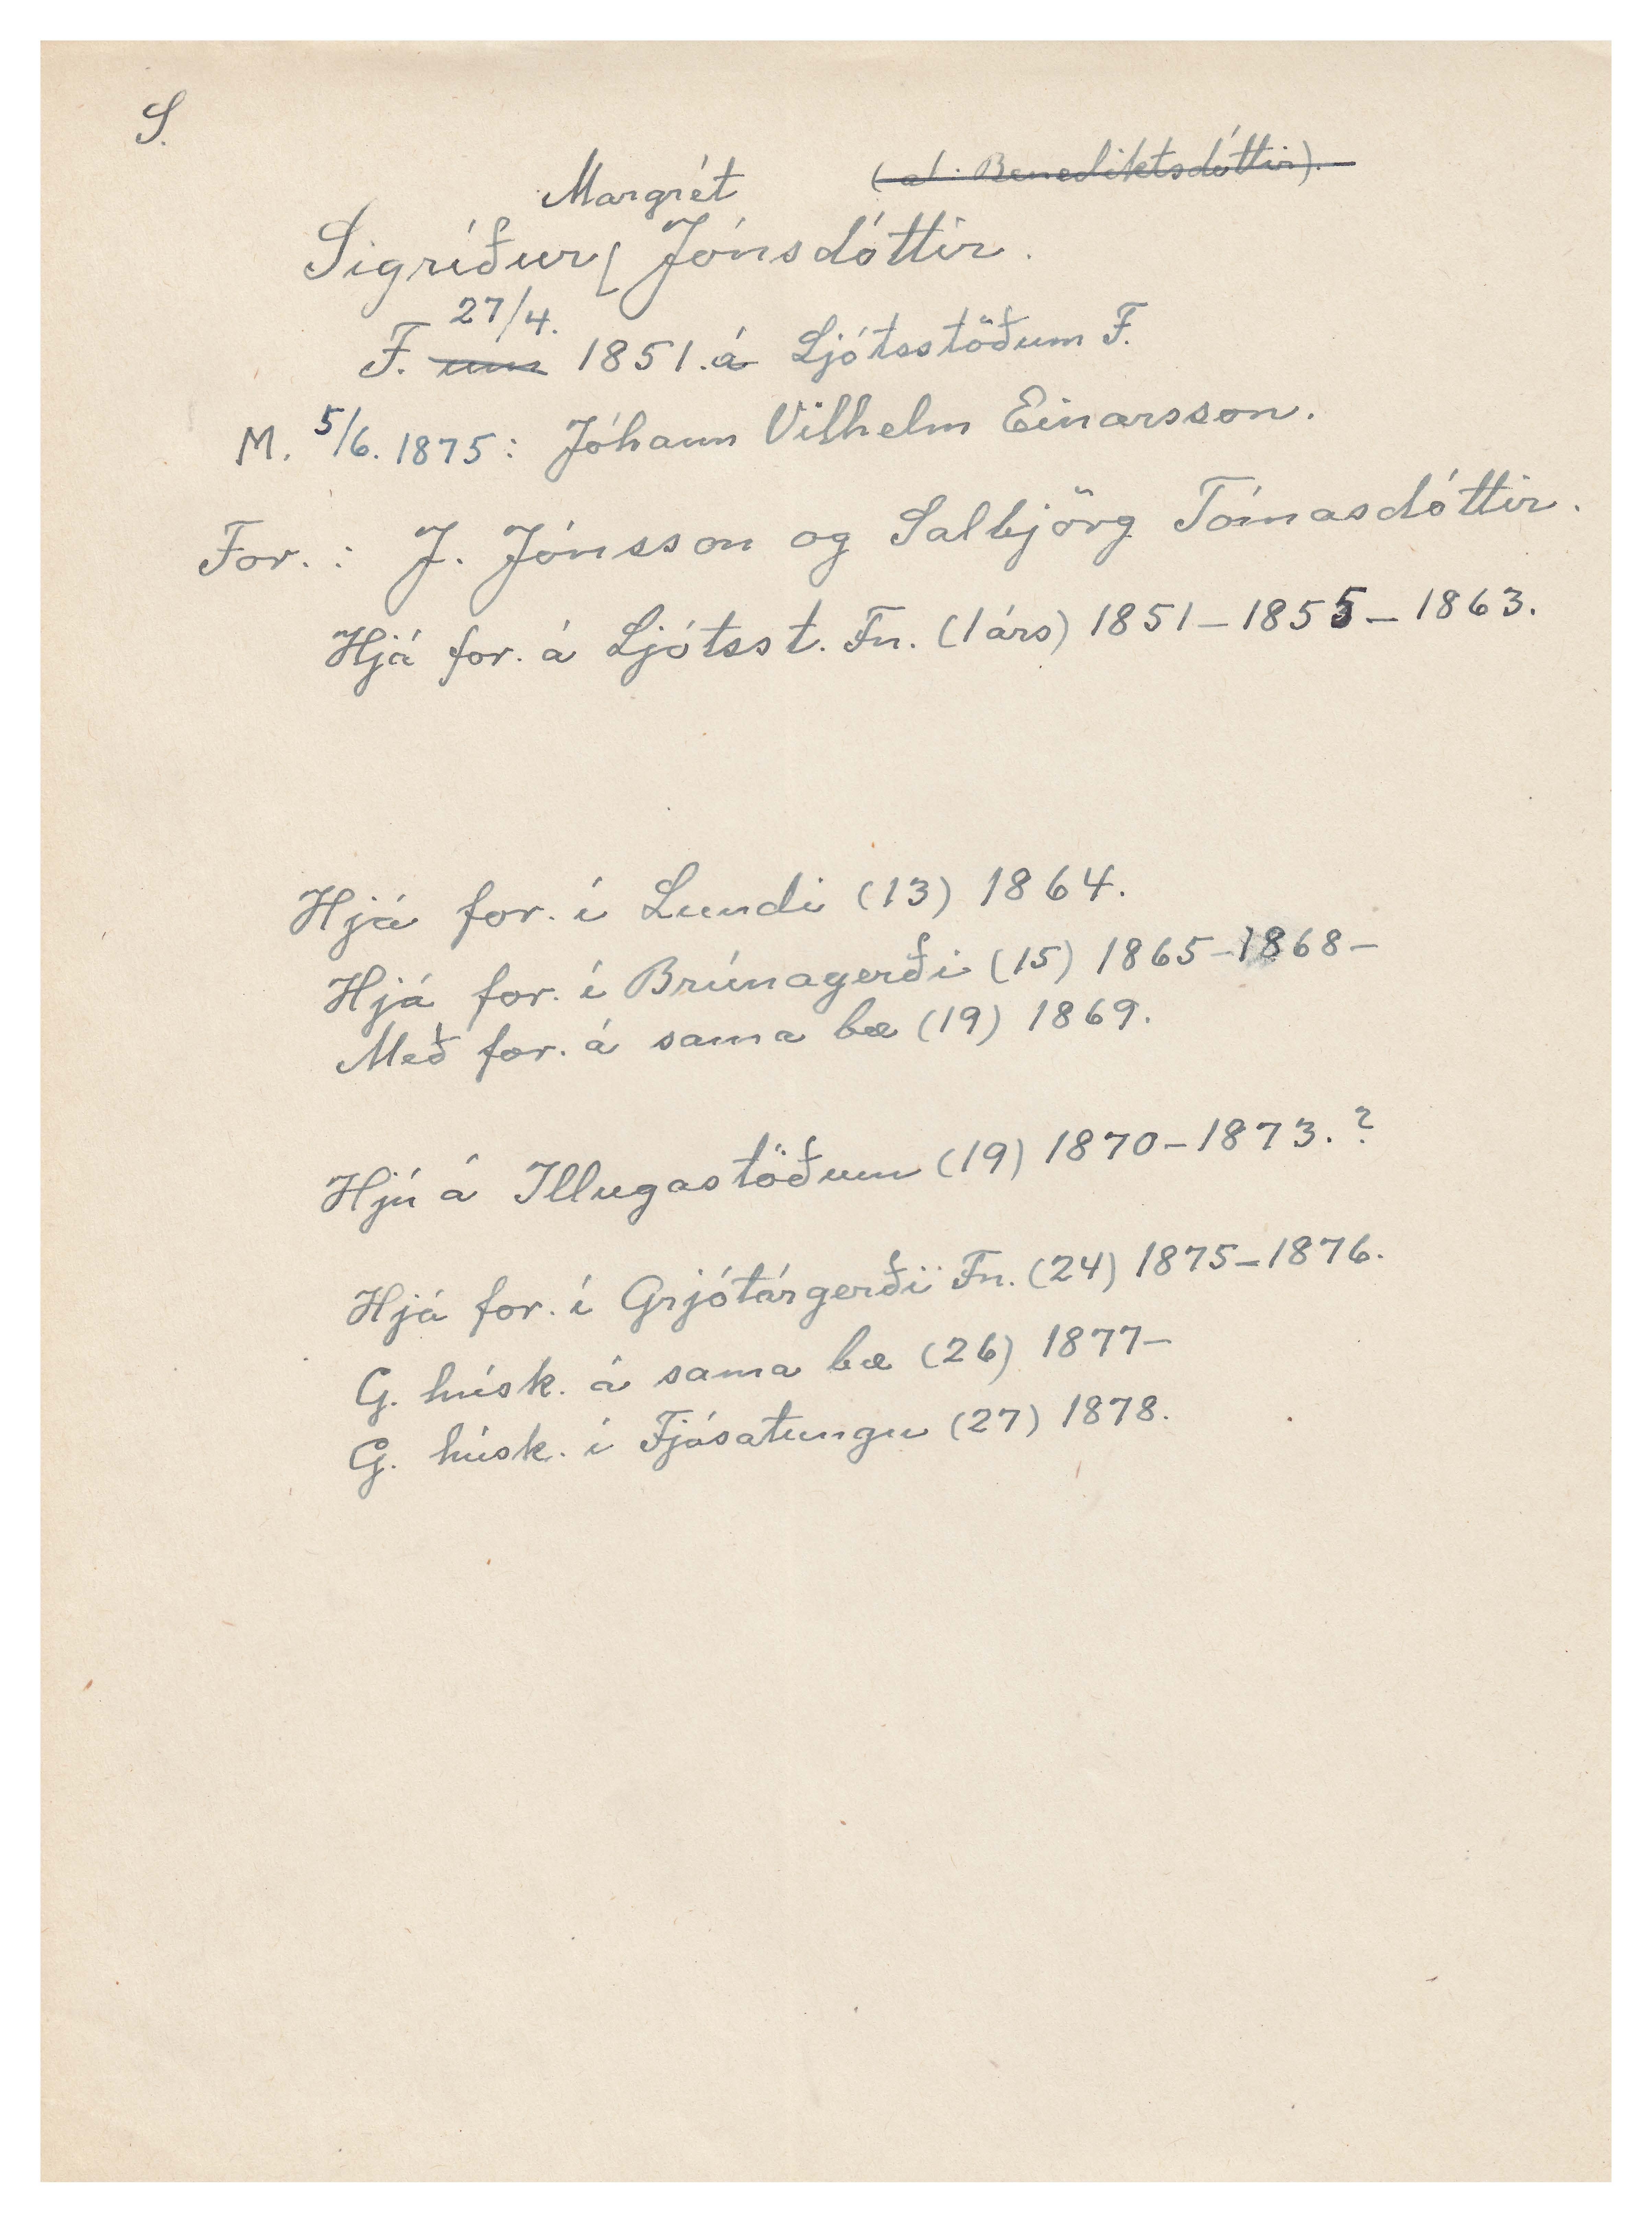 S.
Margrét (al. Benediktsdóttir).
Sigríður Jónsdóttir.
27/4.
F. um 1851. á Ljótsstöðum F.
M. 5/6. 1875: Jóhann Vilhelm Einarsson.
For.: J. Jónsson og Salbjörg Tómasdóttir.
Hjá for. á Ljótsst. Fn. (1 árs) 1851-1855-1863.
Hjá for. í Lundi (13) 1864.
Hjá for. í Brúnagerði (15) 1865-1868-
Með for. á sama bæ (19) 1869.
Hjú á Illugastöðum (19) 1870-1873.?
Hjá for. í Grjótárgerði Fn. (24) 1875-1876.
G. húsk. á sama bæ (26) 1877-
G. húsk. í Fjósatungu (27) 1878.